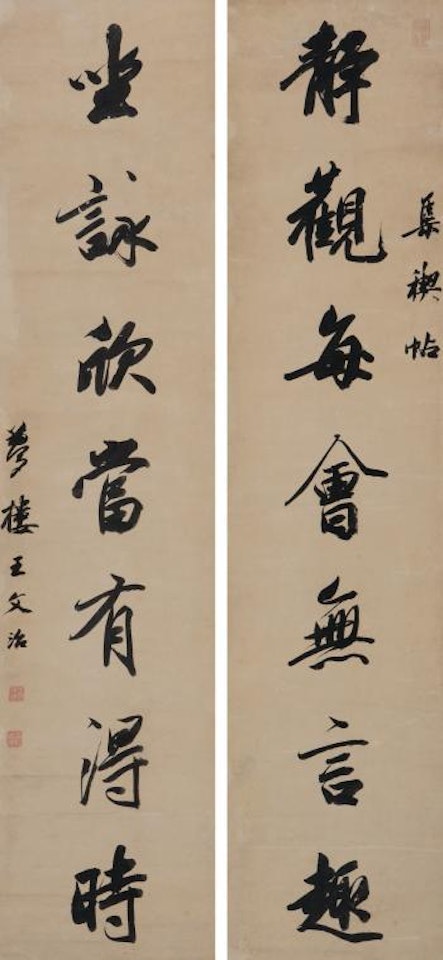 靜觀每會無言趣
集禊帖
坐詠欣當有得時
夢樓王文治